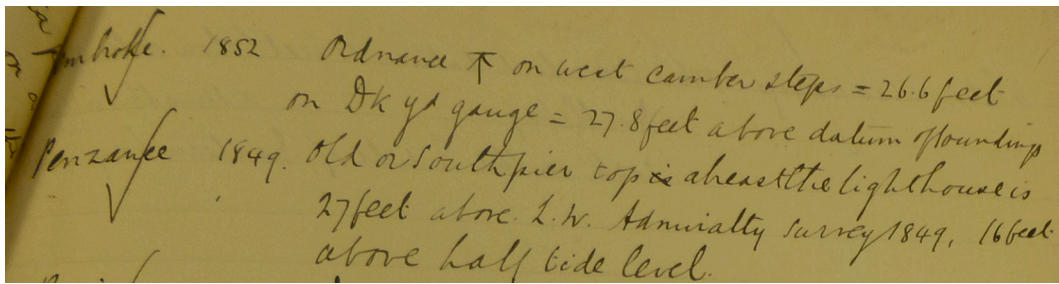 Pembroke. 1852 Ordnance ↑ on west camber steps = 26.6 feet
on Dk yd gauge = 27.8 feet above datum of soundings
Penzance 1849. Old or South pier top abreast the lighthouse is
27 feet above L.W. Admiralty Survey 1849, 16 feet
above half tide level.